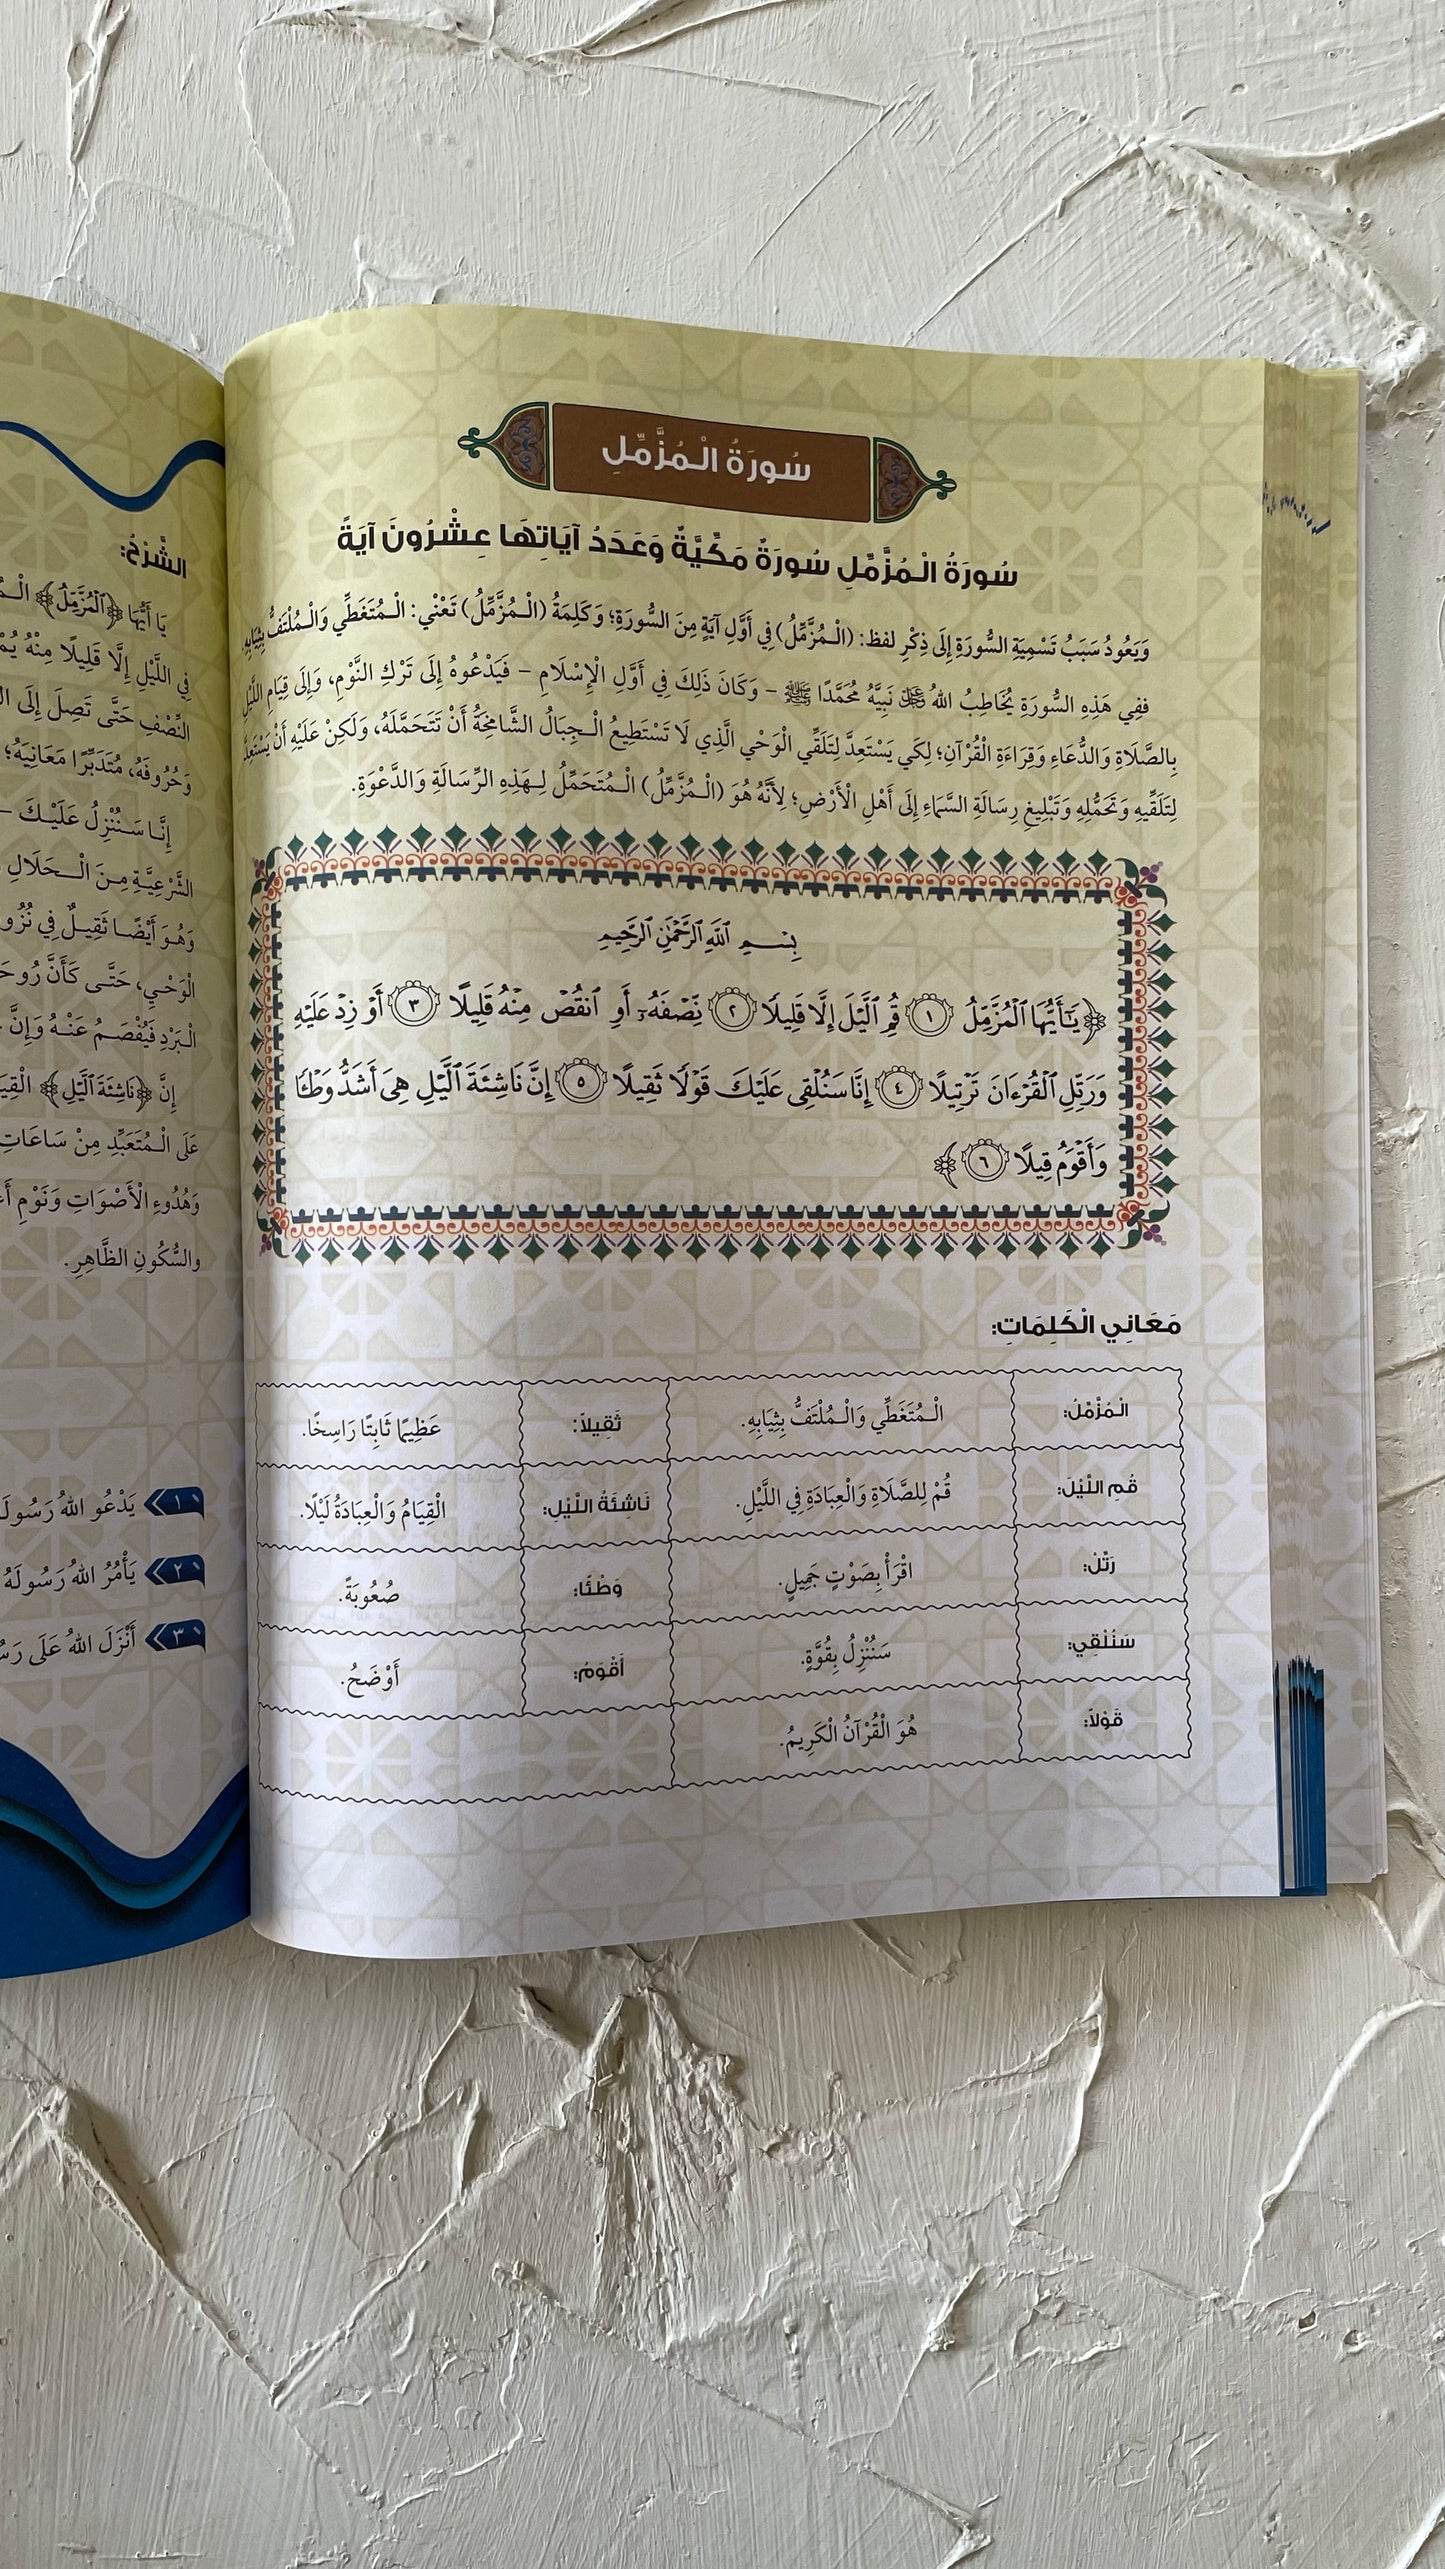 سُورَةُ الْمُزَّمِّلِ
سُورَةُ الْمُزَّمِّلِ سُورَةٌ مَكِّيَّةٌ وَعَدَدُ آيَاتِهَا عِشْرُونَ آيَةً
وَيَعُودُ سَبَبُ تَسْمِيَةِ السُّورَةِ إِلَى ذِكْرِ لفظ: (الْمُزَّمِّلُ) فِي أَوَّلِ آيَةٍ مِنَ السُّورَةِ؛ وَكَلِمَةُ (الْمُزَّمِّلُ) تَعْنِي: الْمُتَغَطِّي وَالْمُلْتَفُّ بِثِيَابِهِ.
ففِي هَذِهِ السُّورَةِ يُخَاطِبُ اللهُ ﷻ نَبِيَّهُ مُحَمَّدًا ﷺ – وَكَانَ ذَلِكَ فِي أَوَّلِ الْإِسْلَامِ – فَيَدْعُوهُ إِلَى تَرْكِ النَّوْمِ، وَإِلَى قِيَامِ اللَّيْلِ
بِالصَّلَاةِ وَالدُّعَاءِ وَقِرَاءَةِ الْقُرْآنِ؛ لِكَي يَسْتَعِدَّ لِتَلَقِّي الْوَحْيِ الَّذِي لَا تَسْتَطِيعُ الْجِبَالُ الشَّامِخَةُ أَنْ تَتَحَمَّلَهُ، وَلَكِنْ عَلَيْهِ أَنْ يَسْتَعِدَّ
لِتَلَقِّيهِ وَتَحَمُّلِهِ وَتَبْلِيغِ رِسَالَةِ السَّمَاءِ إِلَى أَهْلِ الْأَرْضِ؛ لِأَنَّهُ هُوَ (الْمُزَّمِّلُ) الْمُتَحَمِّلُ لِهَذِهِ الرِّسَالَةِ وَالدَّعْوَةِ.
بِسْمِ ٱللَّهِ ٱلرَّحْمَٰنِ ٱلرَّحِيمِ
﴿يَٰٓأَيُّهَا ٱلۡمُزَّمِّلُ ١ قُمِ ٱلَّيۡلَ إِلَّا قَلِيلٗا ٢ نِّصۡفَهُۥٓ أَوِ ٱنقُصۡ مِنۡهُ قَلِيلًا ٣ أَوۡ زِدۡ عَلَيۡهِ
وَرَتِّلِ ٱلۡقُرۡءَانَ تَرۡتِيلًا ٤ إِنَّا سَنُلۡقِي عَلَيۡكَ قَوۡلٗا ثَقِيلًا ٥ إِنَّ نَاشِئَةَ ٱلَّيۡلِ هِيَ أَشَدُّ وَطۡـٔٗا
وَأَقۡوَمُ قِيلًا ٦﴾
مَعَانِي الْكَلِمَاتِ:
الْمُزَّمِّلُ: الْمُتَغَطِّي وَالْمُلْتَفُّ بِثِيَابِهِ. ثَقِيلًا: عَظِيمًا ثَابِتًا رَاسِخًا.
قُمِ اللَّيْلَ: قُمْ لِلصَّلَاةِ وَالْعِبَادَةِ فِي اللَّيْلِ. نَاشِئَةُ اللَّيْلِ: الْقِيَامُ وَالْعِبَادَةُ لَيْلًا.
رَتِّلْ: اقْرَأْ بِصَوْتٍ جَمِيلٍ. وَطْئًا: صُعُوبَةً.
سَنُلْقِي: سَنُنْزِلُ بِقُوَّةٍ. أَقْوَمُ: أَوْضَحُ.
قَوْلًا: هُوَ الْقُرْآنُ الْكَرِيمُ.
الشَّرْحُ:
يَا أَيُّهَا ﴿ٱلۡمُزَّمِّلُ﴾
فِي اللَّيْلِ إِلَّا قَلِيلًا مِنْهُ
النِّصْفِ حَتَّى تَصِلَ إِلَى
وَحُرُوفَهُ، مُتَدَبِّرًا مَعَانِيَهُ؛
إِنَّا سَنُنْزِلُ عَلَيْكَ –
الشَّرْعِيَّةِ مِنَ الْحَلَالِ
وَهُوَ أَيْضًا ثَقِيلٌ فِي
الْوَحْيِ، حَتَّى كَأَنَّ
الْبَرْدِ فَيُفْصَمُ عَنْهُ وَإِنَّ
إِنَّ ﴿نَاشِئَةَ ٱلَّيۡلِ﴾
عَلَى الْمُتَعَبِّدِ مِنْ سَاعَاتِ
وَهُدُوءِ الْأَصْوَاتِ وَنَوْمِ
والسُّكُونِ الظَّاهِرِ.
١ يَدْعُو اللهُ
٢ يَأْمُرُ اللهُ رَسُولَهُ
٣ أَنْزَلَ اللهُ عَلَى